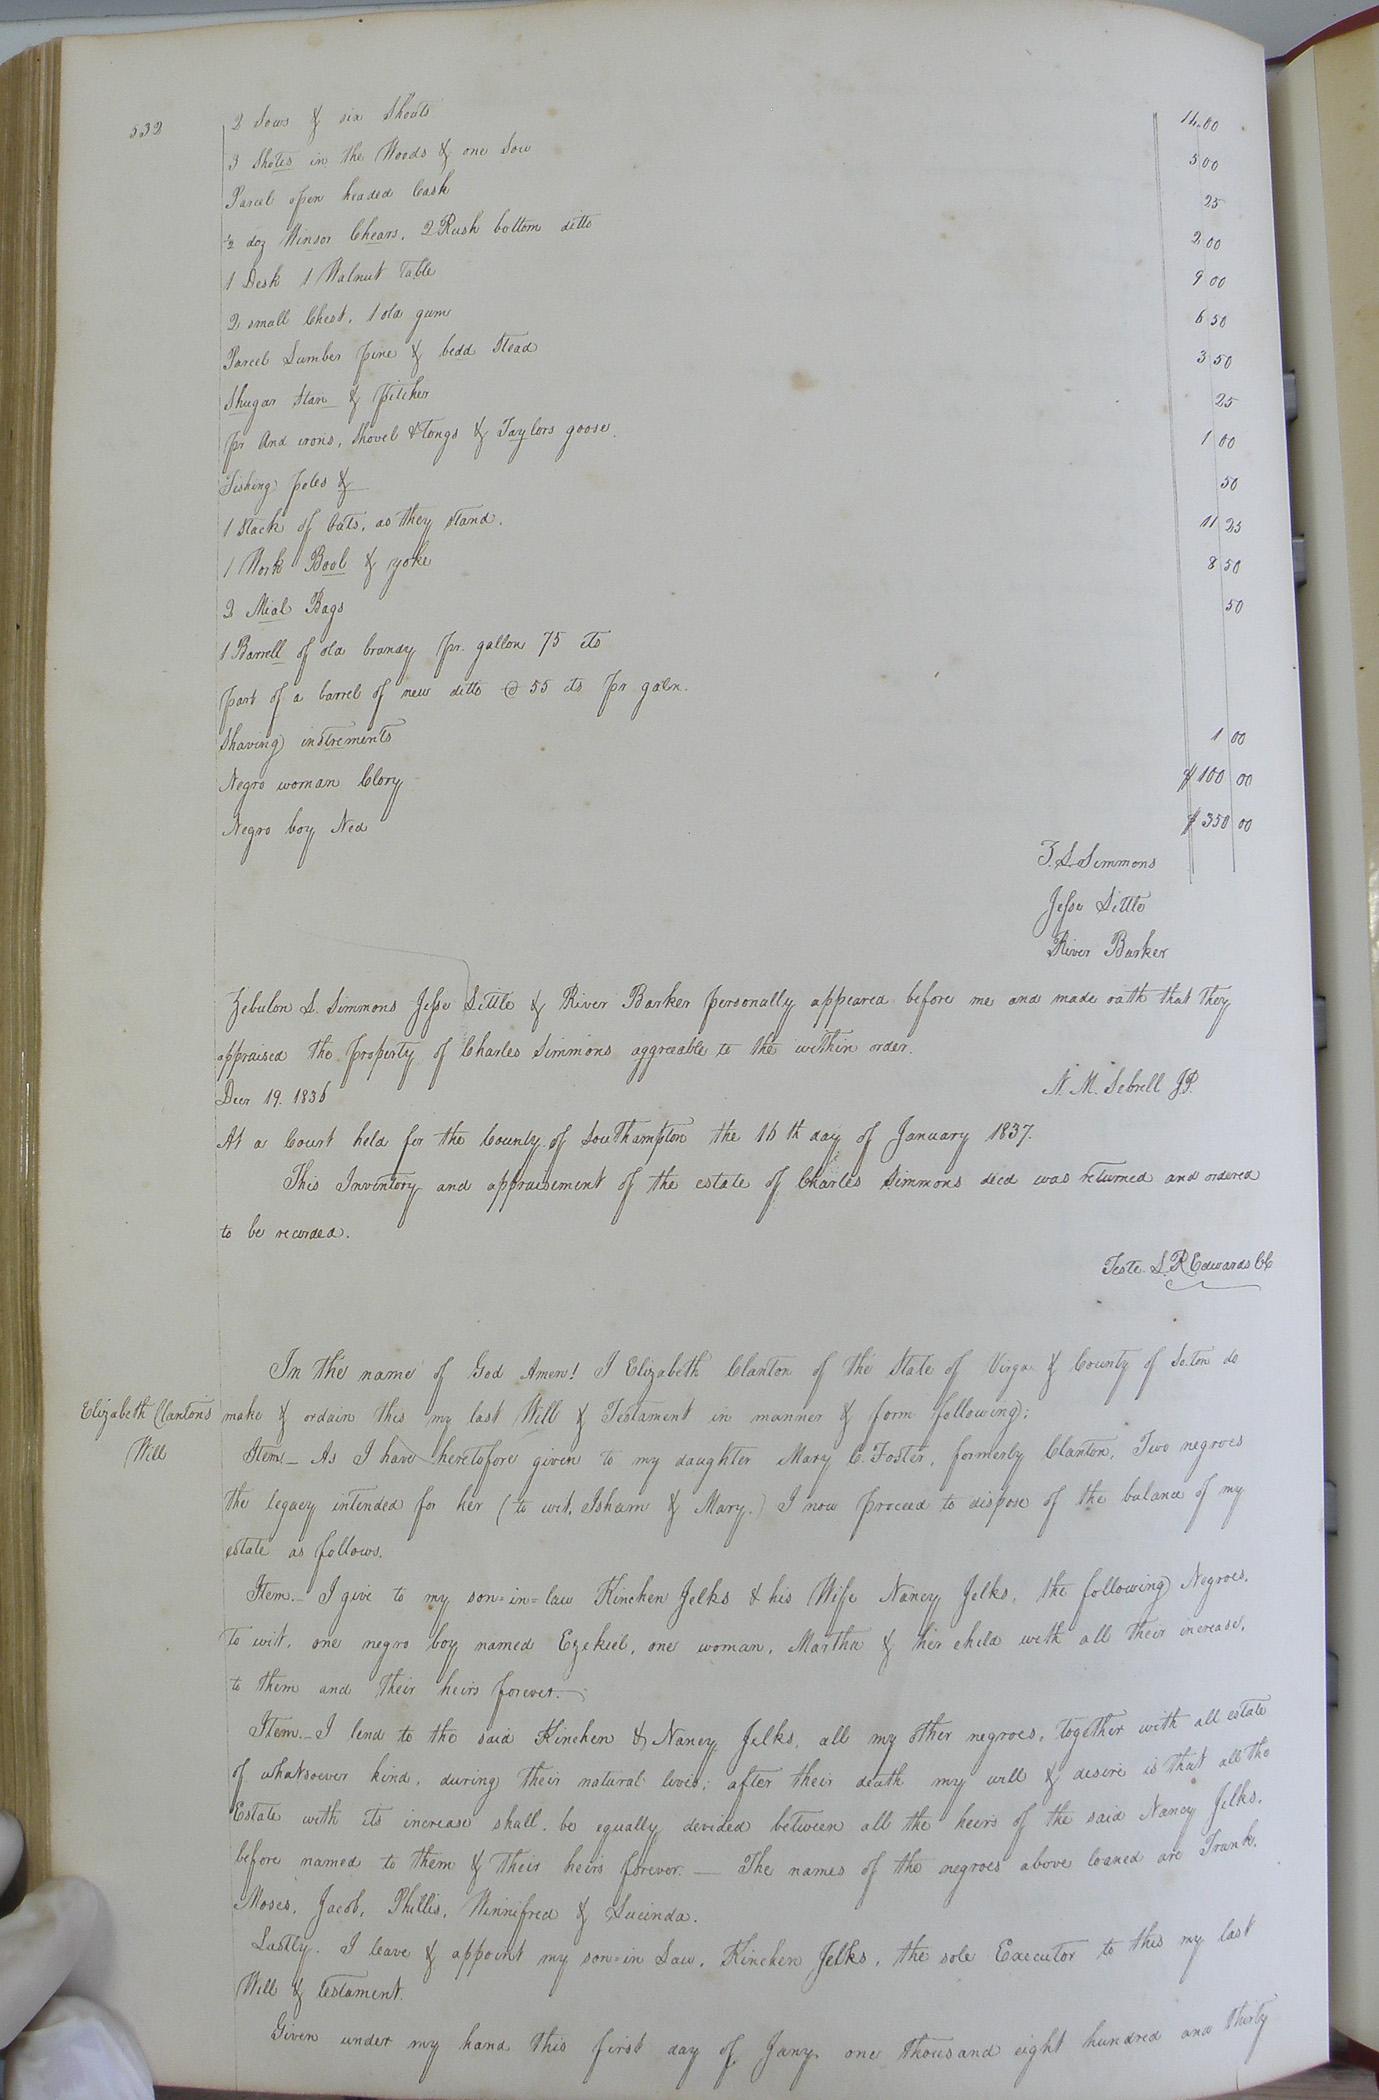 532
2 Sows & six Shoats 14.00
3 Shotes in the Woods & one Sow 5 00
Parcel open headed Cask 25
½ doz Winsor Chears, 2 Rush bottom ditto 2 00
1 Desk 1 Walnut Table 9 00
2 small Chest, 1 old gum 6 50
Parcel Lumber pine & bedd Stead 3 50
Shugar Stan & pitcher 25
pr And irons, Shovel & Tongs & Taylors goose. 1 00
Fishing poles & 50
1 Stack of Oats, as they stand. 11 25
1 Work Bool & yoke 8 50
2 Mial Bags 50
1 Barrell of old brandy pr. gallon 75 cts
part of a barrel of new ditto @ 55 cts pr galn.
Shaving instrements 1 00
Negro woman Clory $100 00
Negro boy Ned $350 00
Z. S. Simmons
Jesse Little
River Barker
Zebulon S. Simmons Jesse Little & River Barker personally appeared before me and made oath that they
appraised the property of Charles Simmons aggreeable to the within order.
Decr 19. 1836 N. M. Sebrell J.P.
At a Court held for the County of Southampton the 16th day of January 1837.
This Inventory and appraisement of the estate of Charles Simmons decd was returned and ordered
to be recorded.
Teste L. R. Edwards CC
In the name of God Amen! I Elizabeth Clanton of the State of Virga & County of So.ton do
Elizabeth Clanton's make & ordain this my last Will & Testament in manner & form following:
Will Item - As I have heretofore given to my daughter Mary C. Foster, formerly Clanton, Two negroes
the legacy intended for her (to wit, Isham & Mary.) I now proceed to dispose of the balance of my
estate as follows.
Item. - I give to my son=in=law Kinchen Jelks & his Wife Nancy Jelks, the following Negroes,
To wit, one negro boy named Ezekiel, one woman, Martha & her child with all their increase,
to them and their heirs forever. -
Item. - I lend to the said Kinchen & Nancy Jelks, all my other negroes, together with all estate
of whatsoever kind, during their natural lives; after their death my will & desire is that all the
Estate with its increase shall be equally devided between all the heirs of the said Nancy Jelks,
before named to them & their heirs forever. — The names of the negroes above loaned are Frank,
Moses, Jacob, Phillis, Winnifred & Lucinda.
Lastly. I leave & appoint my son=in Law, Kinchen Jelks, the sole Executor to this my last
Will & testament.
Given under my hand this first day of Jany. one thousand eight hundred and thirty